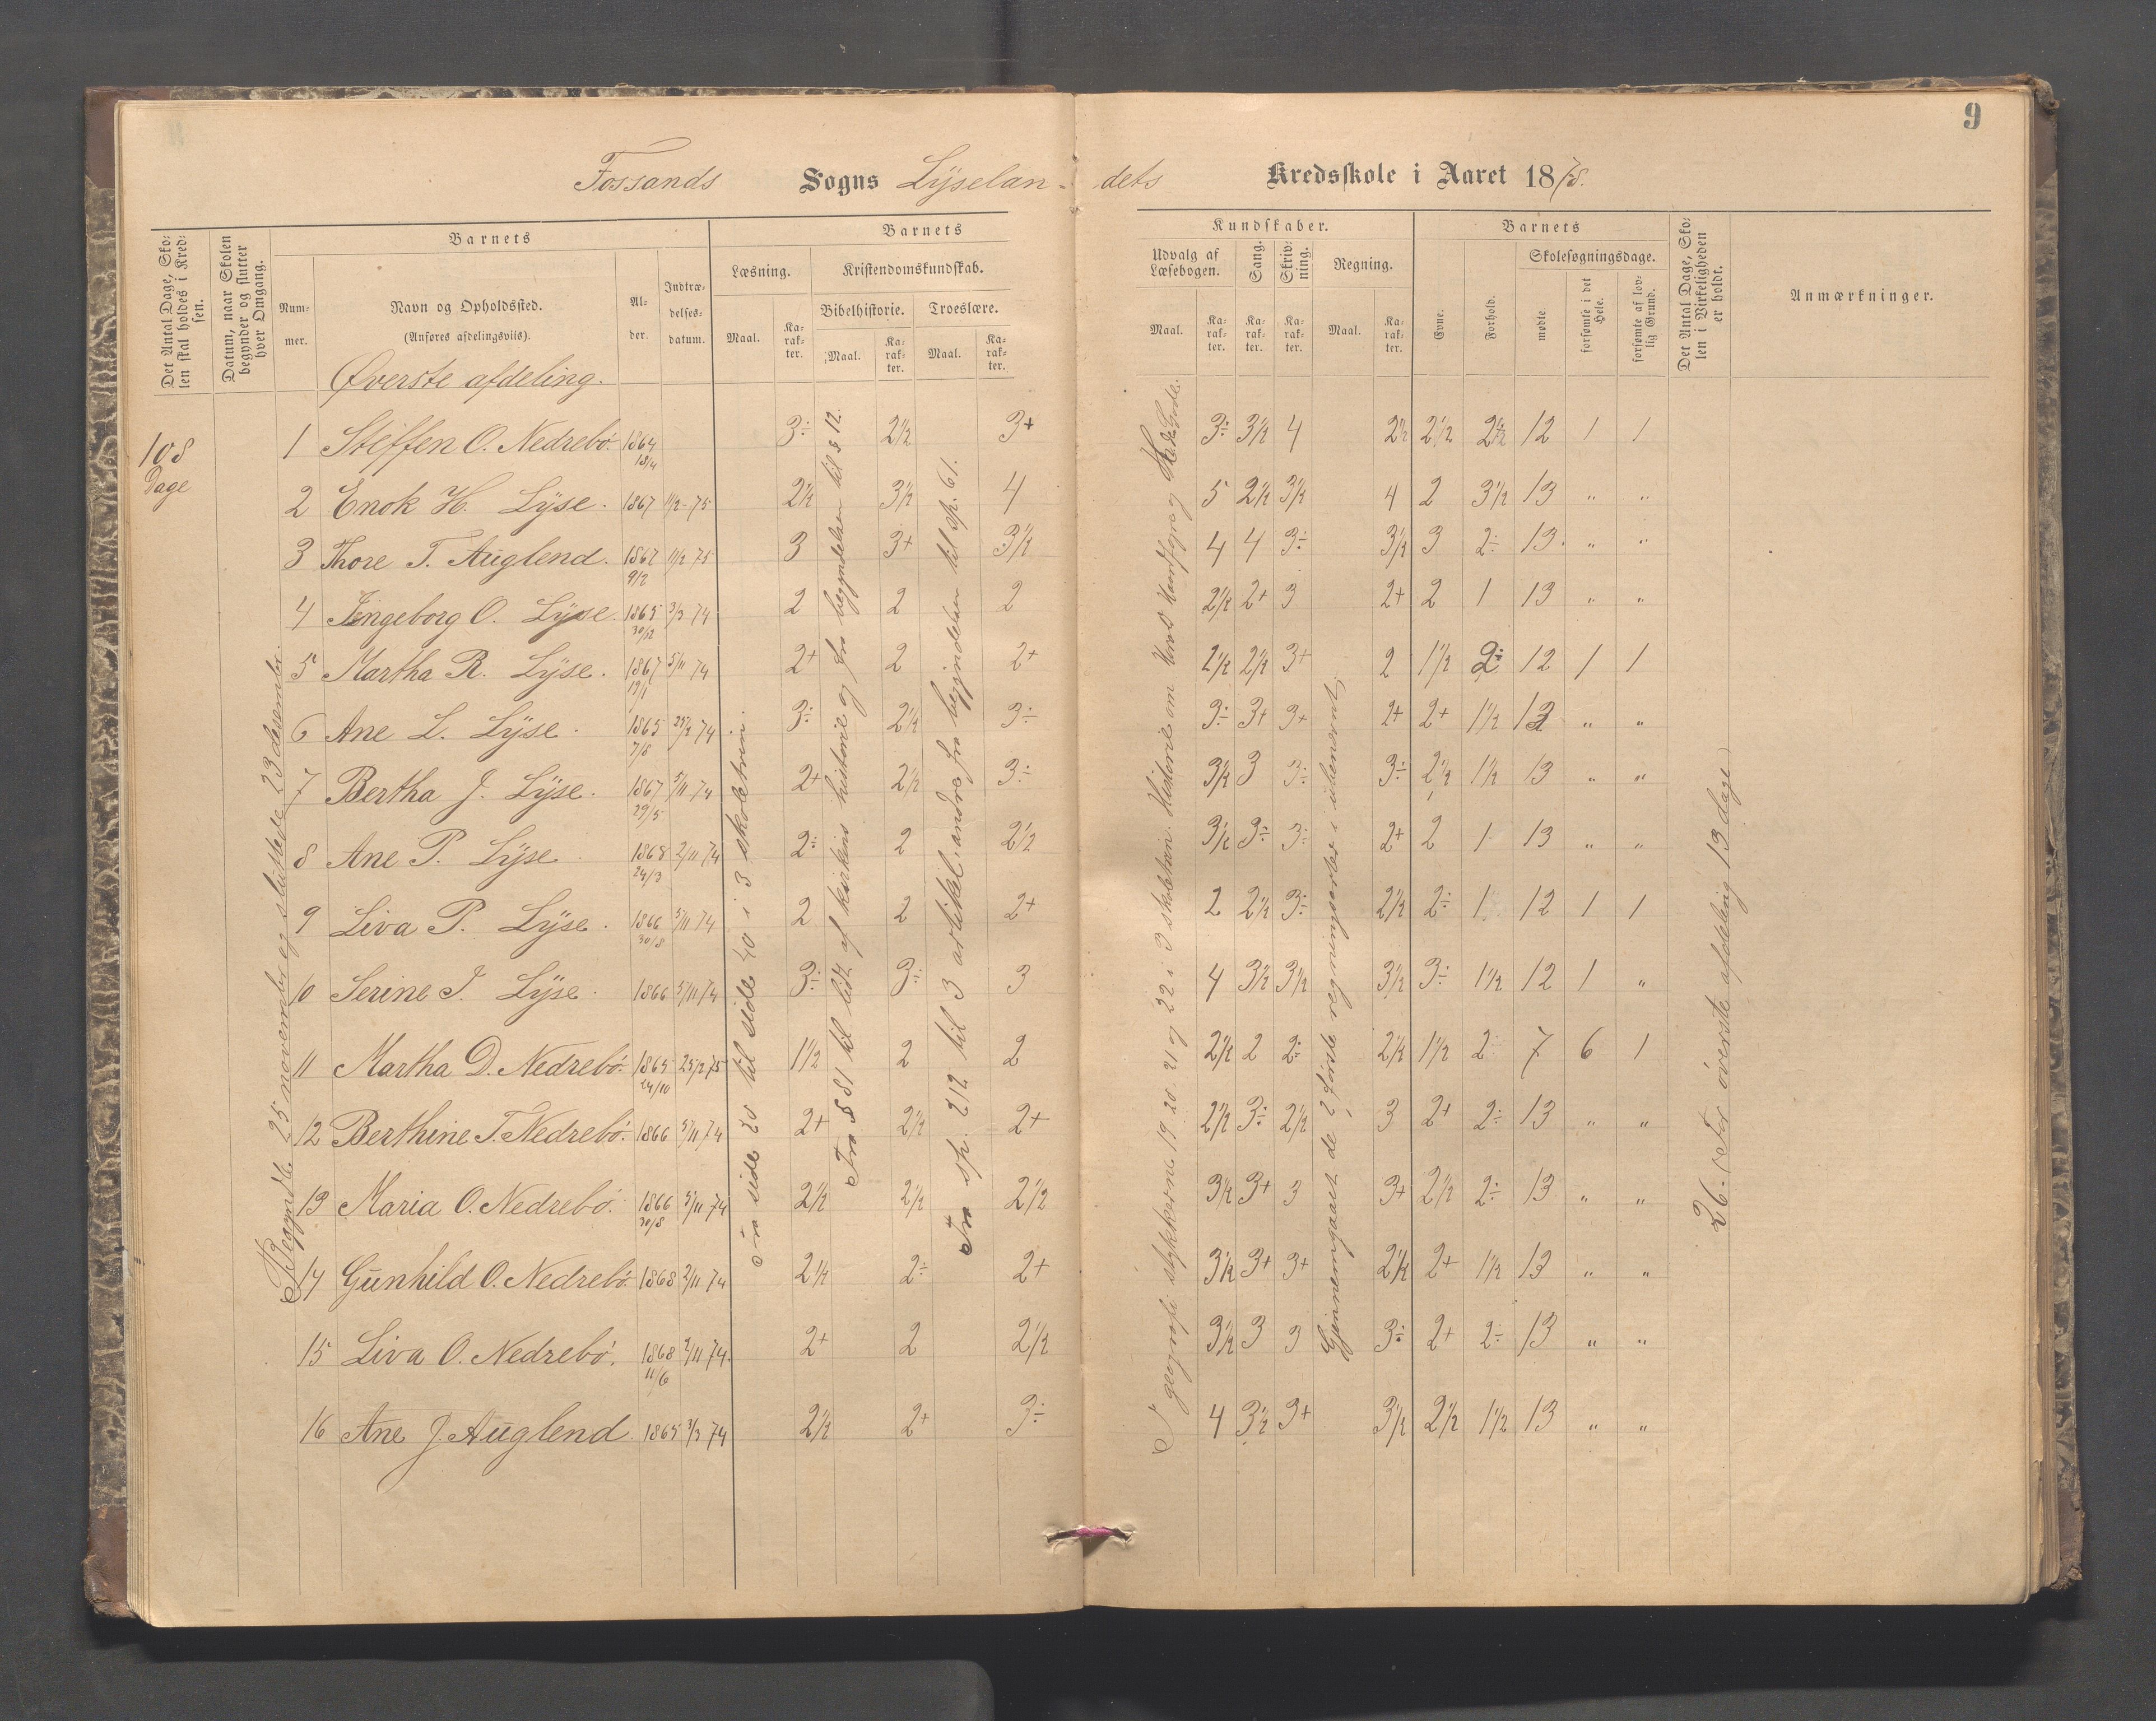 9
Fossands Sogns Lÿselan- dets Kredsskole i Aaret 1878.
Det Antal Dage, Skolen skal holdes i Kredsen.
Datum, naar Skolen begynder og slutter hver Omgang.
Barnets
Nummer.
Navn og Opholdssted.
(Anføres afdelingsviis).
Alder.
Indtrædelsesdatum.
Barnets
Læsning.
Maal.
Karakter.
Kristendomskundskab.
Bibelhistorie.
Maal.
Karakter.
Troeslære.
Maal.
Karakter.
Kundskaber.
Udvalg af Læsebogen.
Maal.
Karakter.
Sang.
Karakter.
Skrivning.
Karakter.
Regning.
Maal.
Karakter.
Barnets
Evne.
Forhold.
Skolesøgningsdage.
mødte.
forsømte i det Hele.
forsømte af lovlig Grund.
Det Antal Dage, Skolen i Virkeligheden er holdt.
Anmærkninger.
Øverste afdeling.
108 Dage
Begyndte 25 november og sluttede 23 desember.
Fra side 20 til side 40 i 3 skoletrin.
Fra § 81 til lidt af kirkens historie og fra begyndelsen til § 12.
Fra sp. 212 til 3 artikel, andre fra begyndelsen til sp. 61.
I geografi stykkerne 19, 20, 21 og 22 i 3 skoletrin. Historie om Harald Haarfagre og
Gjennemgaaet de 2 første regningsarter i ubenævnt.
26. (For øverste afdeling 13 dage)
1 Steffen O. Nedrebö. 1864 18/4 3÷ 2½ 3+ 3÷ 3½ 4 2½ 2½ 2½ 12 1 1
2 Enok H. Lÿse. 1867 11/2-75 2½ 3½ 4 5 2½ 3½ 4 2 3½ 13 " "
3 Thore T. Auglend. 1867 9/2 11/2 75 3 3+ 3½ 4 4 3÷ 3½ 3 2÷ 13. " "
4 Ingeborg O. Lÿse. 1865 30/12 3/3 74 2 2 2 2½ 2+ 3 2+ 2 1 13 " "
5 Martha R. Lÿse. 1867 19/1 5/11 74 2+ 2 2+ 2½ 2½ 3+ 2 1½ 2÷ 12 1 1
6 Ane L. Lÿse. 1865 7/8 25/2 74 3÷ 2½ 3÷ 3÷ 3+ 3+ 2+ 2+ 1½ 13 " "
7 Bertha J. Lÿse. 1867 29/5 5/11 74 2+ 2½ 3÷ 3½ 3 3÷ 3÷ 2½ 1½ 13 " "
8 Ane P. Lÿse 1868 24/3 2/11 74 2÷ 2 2½ 3½ 3÷ 3÷ 2+ 2 1 13 " "
9 Liva P. Lÿse. 1866 30/8 5/11 74 2 2 2+ 2 2½ 3÷ 2½ 2÷ 1 12 1 1
10 Serine J. Lÿse. 1866 5/11 74 3÷ 3÷ 3 4 3½ 3½ 3½ 3÷ 1½ 12 1 "
11 Martha D. Nedrebö. 1865 24/10 25/2 75 1½ 2 2 2½ 2 2÷ 2½ 1½ 2÷ 7 6 1
12 Berthine T. Nedrebö. 1866 5/11 74 2+ 2½ 2+ 2½ 3÷ 2½ 3 2+ 2÷ 13 " "
13 Maria O. Nedrebö. 1866 30/8 5/11 74 2½ 2½ 2½ 3½ 3+ 3 3+ 2½ 2÷ 13 " "
14 Gunhild O. Nedrebö. 1868 2/11 74 2½ 2÷ 2+ 3½ 3+ 3+ 2½ 2+ 1½ 13 " "
15 Liva O. Nedrebö. 1868 11/6 2/11 74. 2+ 2 2½ 3½ 3 3 3÷ 2+ 2÷ 13 " "
16 Ane J. Auglend 1865 3/3 74 2½ 2+ 3÷ 4 3½ 3+ 3½ 2½ 1½ 13 " "